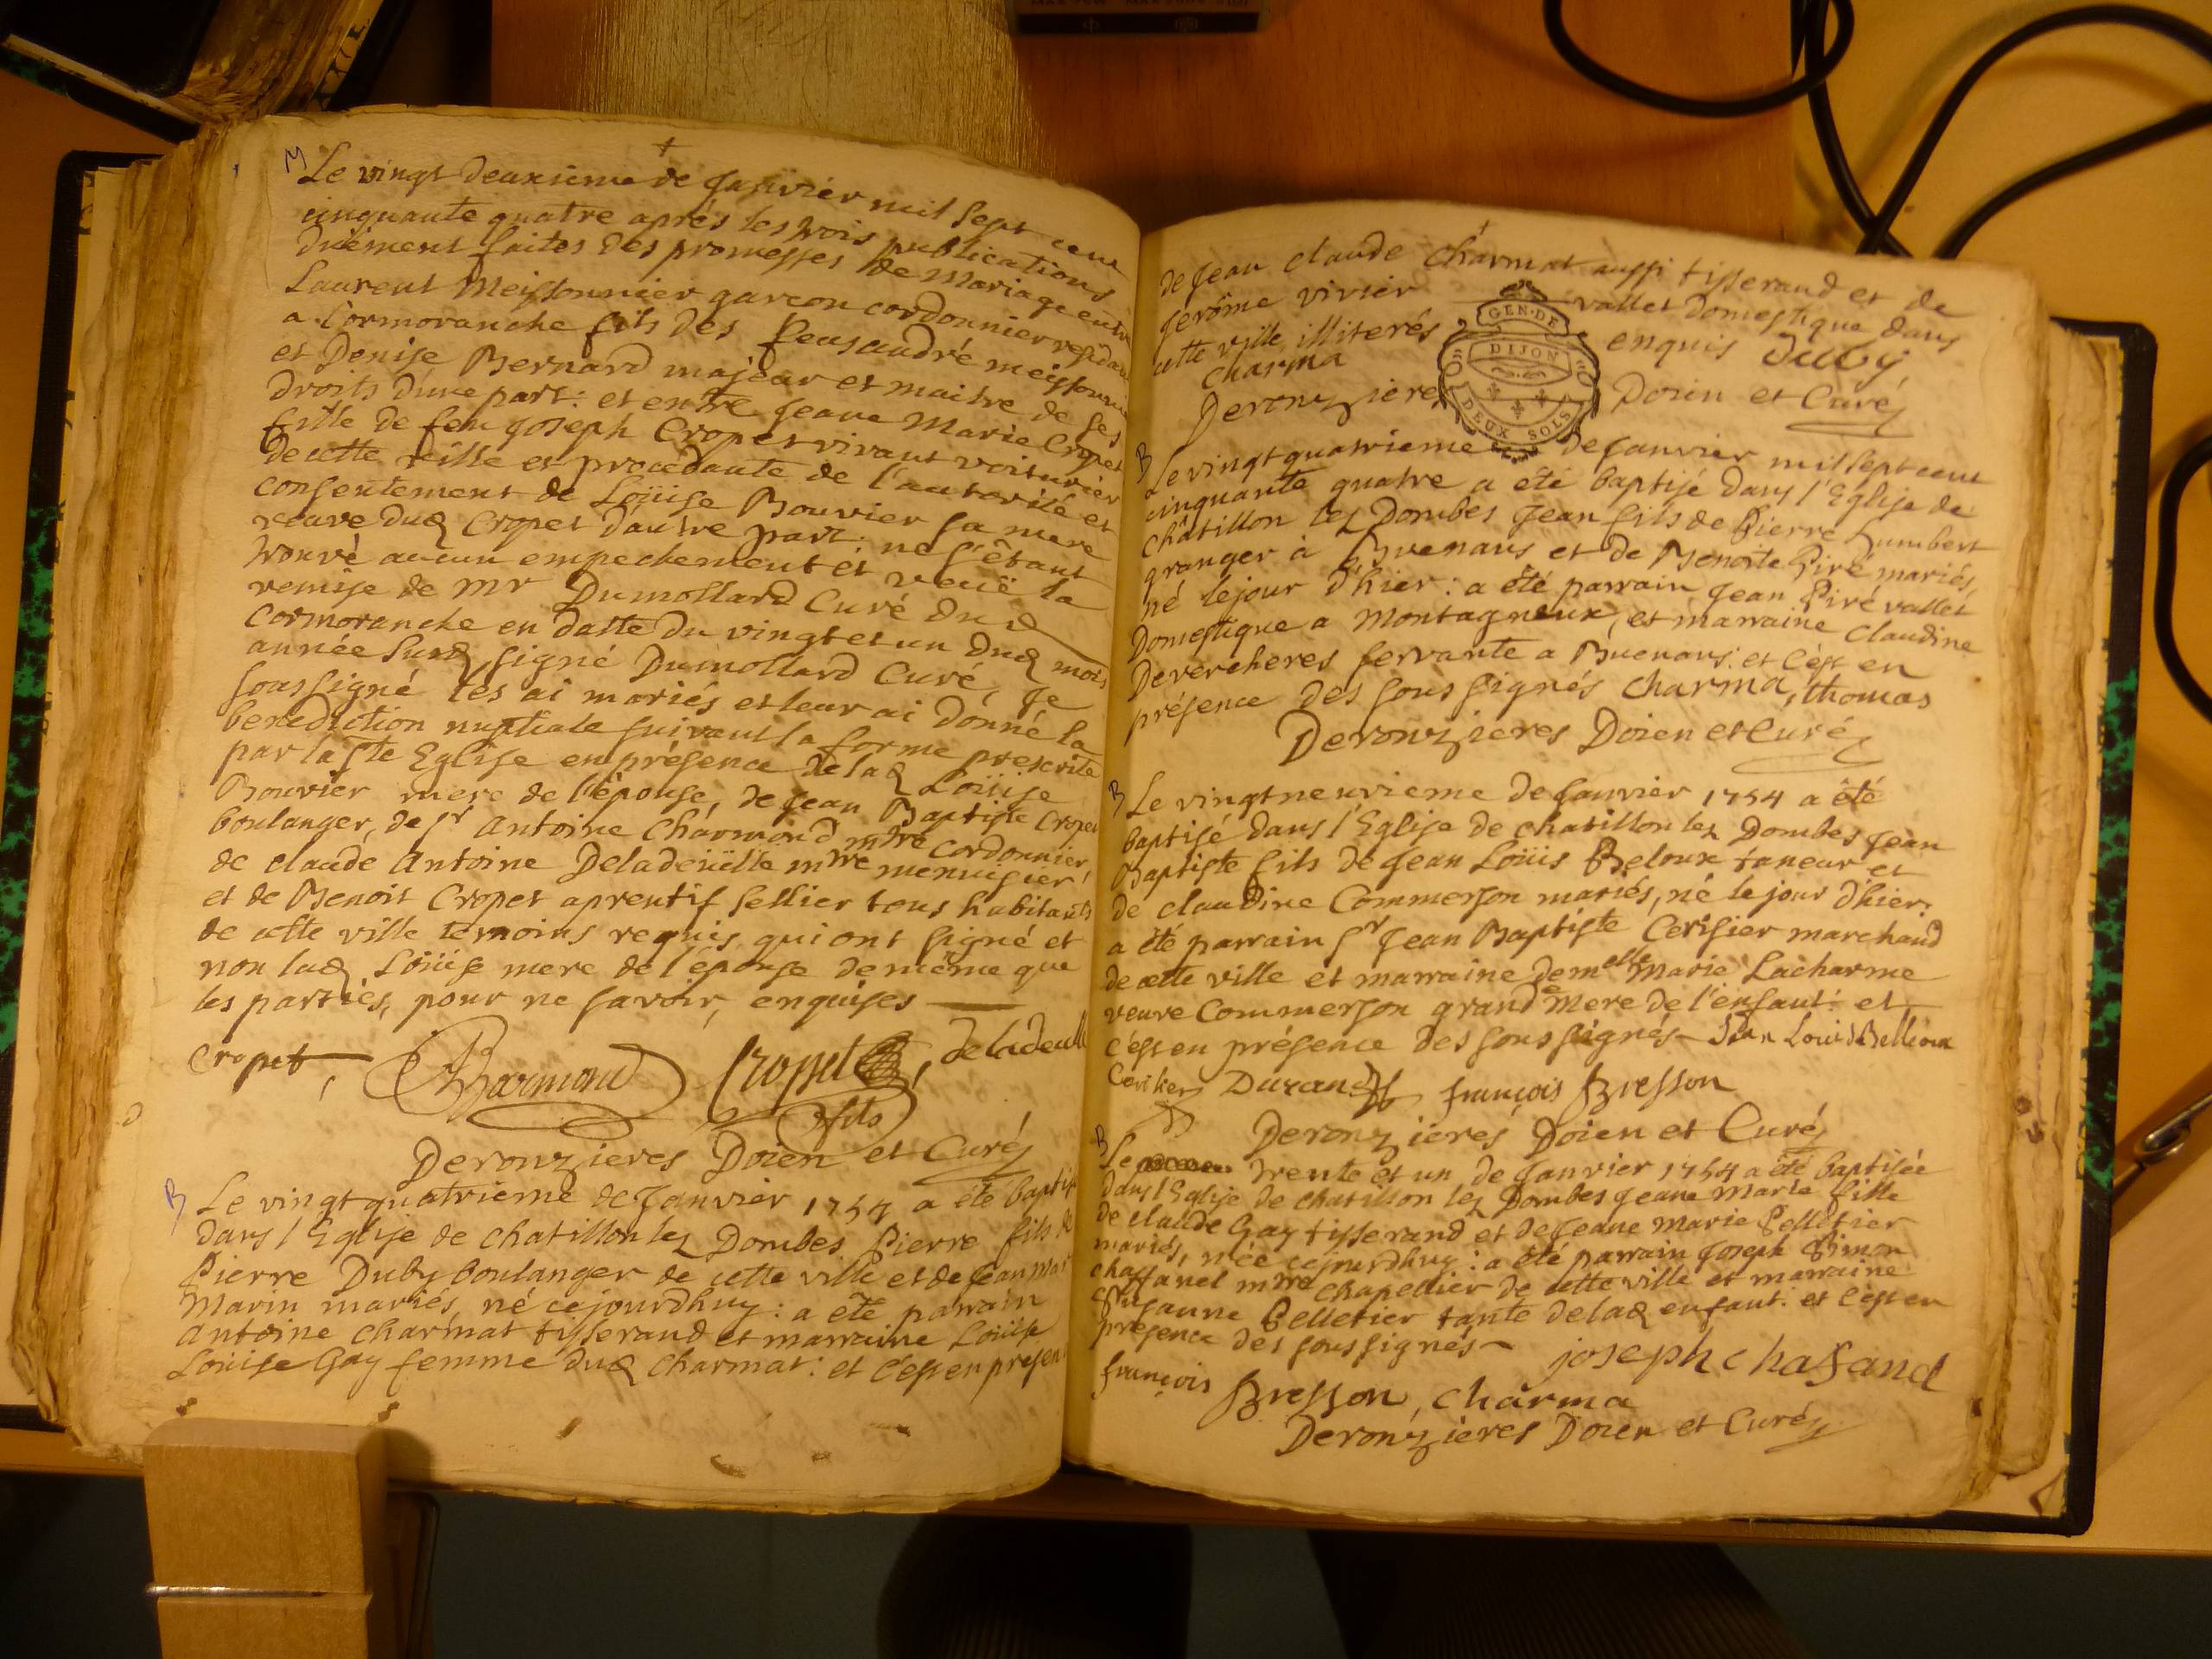 M
Le vingt deuxieme de Janvier mil Sept cent
cinquante quatre aprés les trois publications
duëment faites des promesses de Mariage entre
Laurent Meissonnier garçon cordonnier residant
a Cormoranche fils des feus andré meissonnier
et Denise Bernard majeur et maitre de ses
droits d'une part: et entre Jeane Marie Cropet
fille de feu Joseph Cropet vivant voiturier
de cette ville et procedante de l'autorité et
consentement de Loüise Bouvier sa mere
veuve dud Cropet d'autre part. ne s'étant
trouvé aucun empechement et veuë la
remise de Mr Dumollard Curé dud
Cormoranche en datte du vingt et un dud mois
année susd signé Dumollard Curé, Je
soussigné les ai mariés et leur ai donné la
benediction nuptiale suivant la forme prescrite
par la Ste Eglise en présence de lad Loüise
Bouvier mere de l'épouse, de Jean Baptiste Cropet
boulanger, de sr Antoine Charmond mtre cordonnier,
de claude Antoine Deladeuille mtre menuisier,
et de Benoit Cropet aprentif sellier tous habitants
de cette ville temoins requis qui ont signé et
non lad Loüise mere de l'épouse de même que
les parties, pour ne savoir, enquises
Cropet, Charmond Cropet, deladeuille
fils
Deronzieres Doien et Curé
B
Le vingt quatrieme de Janvier 1754 a été baptisé
dans l'Eglise de chatillon lez Dombes Pierre fils de
Pierre Duby boulanger de cette ville et de Jean Mar
Marin mariés, né ce jourdhuy: a été parrain
Antoine Charmat tisserand et marraine Loüise
Loüise Gay femme dud Charmat: et c'est en presen
de Jean claude Charmat aussi tisserand et de
Jerôme vivier vallet domestique dans
cette ville illiterés enquis Duby
charma
Deronzieres Doien et Curé
GEN. DE
DIJON
DEUX SOLS
B
Le vingt quatrieme de Janvier mil sept cent
cinquante quatre a été baptisé dans l'Eglise de
châtillon lez Dombes Jean fils de Pierre humbert
granger à Buenans et de Benoite Piré mariés,
né le jour d'hier: a été parrain Jean Piré vallet
Domestique a Montagneux, et marraine Claudine
Devercheres servante a Buenans. et c'est en
présence des soussignés Charma, thomas
Deronzieres Doien et Curé
B
Le vingt neuvieme de Janvier 1754 a été
baptisé dans l'Eglise de chatillon lez Dombes Jean
Baptiste fils de Jean Loüis Beloux taneur et
de claudine Commerson mariés, né le jour d'hier:
a été parrain sr Jean Baptiste Cerisier marchand
de cette ville et marraine demelle Marie Lacharme
veuve Commerson grande Mere de l'enfant: et
c'est en présence des soussignés Jean Louis Bellioux
Cerisier Durand françois Bresson
Deronzieres Doien et Curé
B
Le trente et un de Janvier 1754 a été baptisée
dans l'Eglise de chatillon lez Dombes Jeane Marie fille
de claude Gay tisserand et de Jeane Marie Pelletier
mariés, née ce jourdhuy: a été parrain Joseph Simon
chaffanel mtre chapellier de cette ville et marraine
Susanne Pelletier tante de lad enfant. et c'est en
présence des soussignés joseph chafanel
françois Bresson, charma
Deronzieres Doien et Curé